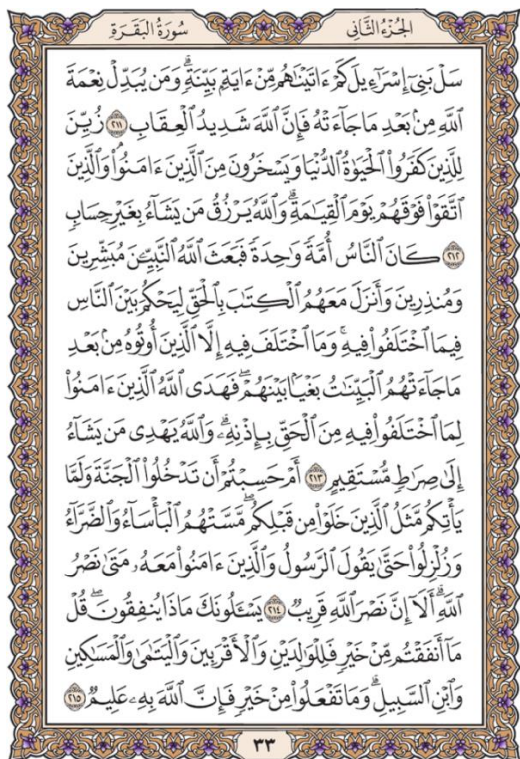 الجزء الثاني
سورة البقرة
سَلۡ بَنِيٓ إِسۡرَٰٓءِيلَ كَمۡ ءَاتَيۡنَٰهُم مِّنۡ ءَايَةِۭ بَيِّنَةٖۗ وَمَن يُبَدِّلۡ نِعۡمَةَ
ٱللَّهِ مِنۢ بَعۡدِ مَا جَآءَتۡهُ فَإِنَّ ٱللَّهَ شَدِيدُ ٱلۡعِقَابِ ٢١١ زُيِّنَ
لِلَّذِينَ كَفَرُواْ ٱلۡحَيَوٰةُ ٱلدُّنۡيَا وَيَسۡخَرُونَ مِنَ ٱلَّذِينَ ءَامَنُواْۘ وَٱلَّذِينَ
ٱتَّقَوۡاْ فَوۡقَهُمۡ يَوۡمَ ٱلۡقِيَٰمَةِۗ وَٱللَّهُ يَرۡزُقُ مَن يَشَآءُ بِغَيۡرِ حِسَابٖ
٢١٢ كَانَ ٱلنَّاسُ أُمَّةٗ وَٰحِدَةٗ فَبَعَثَ ٱللَّهُ ٱلنَّبِيِّـۧنَ مُبَشِّرِينَ
وَمُنذِرِينَ وَأَنزَلَ مَعَهُمُ ٱلۡكِتَٰبَ بِٱلۡحَقِّ لِيَحۡكُمَ بَيۡنَ ٱلنَّاسِ
فِيمَا ٱخۡتَلَفُواْ فِيهِۚ وَمَا ٱخۡتَلَفَ فِيهِ إِلَّا ٱلَّذِينَ أُوتُوهُ مِنۢ بَعۡدِ
مَا جَآءَتۡهُمُ ٱلۡبَيِّنَٰتُ بَغۡيَۢا بَيۡنَهُمۡۖ فَهَدَى ٱللَّهُ ٱلَّذِينَ ءَامَنُواْ
لِمَا ٱخۡتَلَفُواْ فِيهِ مِنَ ٱلۡحَقِّ بِإِذۡنِهِۦۗ وَٱللَّهُ يَهۡدِي مَن يَشَآءُ
إِلَىٰ صِرَٰطٖ مُّسۡتَقِيمٍ ٢١٣ أَمۡ حَسِبۡتُمۡ أَن تَدۡخُلُواْ ٱلۡجَنَّةَ وَلَمَّا
يَأۡتِكُم مَّثَلُ ٱلَّذِينَ خَلَوۡاْ مِن قَبۡلِكُمۖ مَّسَّتۡهُمُ ٱلۡبَأۡسَآءُ وَٱلضَّرَّآءُ
وَزُلۡزِلُواْ حَتَّىٰ يَقُولَ ٱلرَّسُولُ وَٱلَّذِينَ ءَامَنُواْ مَعَهُۥ مَتَىٰ نَصۡرُ
ٱللَّهِۗ أَلَآ إِنَّ نَصۡرَ ٱللَّهِ قَرِيبٞ ٢١٤ يَسۡـَٔلُونَكَ مَاذَا يُنفِقُونَۖ قُلۡ
مَآ أَنفَقۡتُم مِّنۡ خَيۡرٖ فَلِلۡوَٰلِدَيۡنِ وَٱلۡأَقۡرَبِينَ وَٱلۡيَتَٰمَىٰ وَٱلۡمَسَٰكِينِ
وَٱبۡنِ ٱلسَّبِيلِۗ وَمَا تَفۡعَلُواْ مِنۡ خَيۡرٖ فَإِنَّ ٱللَّهَ بِهِۦ عَلِيمٞ ٢١٥
٣٣